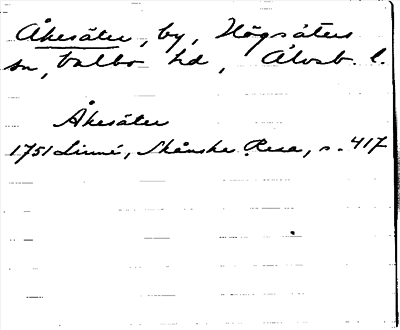 Åkesäter, by, Högsäters
sn, Valbo hd, Älvsb. l.
Åkesäter
1751 Linné, Skånska Resa, s. 417